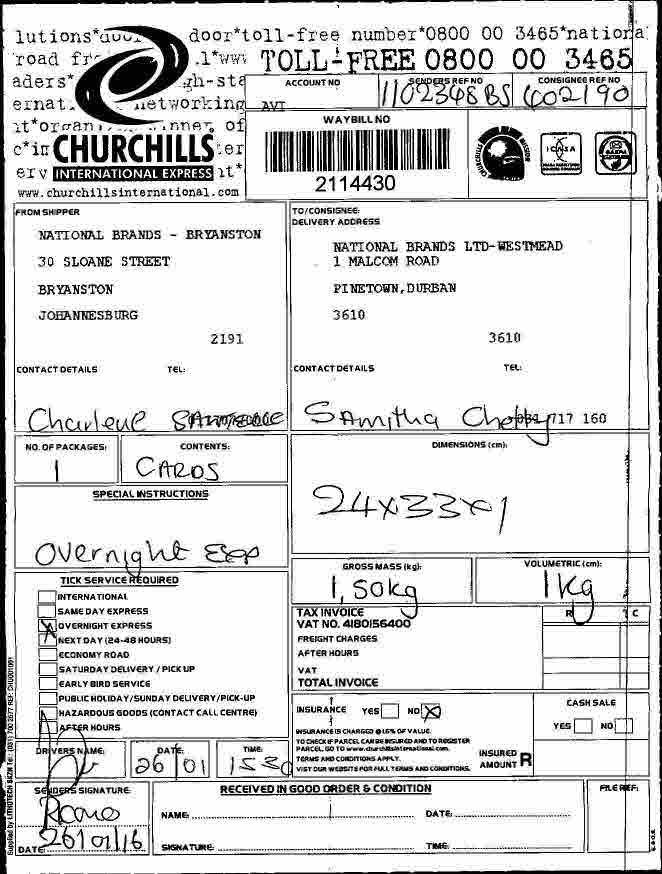 door*toll-free number*0800 00 3465*nationa
road
TOLL-FREE 0800 00 3465
aders*
networking
CHURCHILLS
INTERNATIONAL EXPRESS
www.churchillsinternational.com
ACCOUNT NO
AVI
SENDERS REF NO
1102348BS
CONSIGNEE REF NO
602190
WAYBILL NO
2114430
ICASA
FROM SHIPPER
NATIONAL BRANDS - BRYANSTON
30 SLOANE STREET
BRYANSTON
JOHANNESBURG
2191
CONTACT DETAILS TEL:
Charlene
TO/CONSIGNEE:
DELIVERY ADDRESS
NATIONAL BRANDS LTD-WESTMEAD
1 MALCOM ROAD
PINETOWN,DURBAN
3610
3610
CONTACT DETAILS TEL:
Samitha Chetty 717 160
NO. OF PACKAGES:
1
CONTENTS:
CARDS
DIMENSIONS (cm):
24x33x1
SPECIAL INSTRUCTIONS
Overnight Exp
GROSS MASS (kg):
1,50kg
VOLUMETRIC (cm):
1kg
TICK SERVICE REQUIRED
INTERNATIONAL
SAME DAY EXPRESS
OVERNIGHT EXPRESS
NEXT DAY (24-48 HOURS)
ECONOMY ROAD
SATURDAY DELIVERY / PICK UP
EARLY BIRD SERVICE
PUBLIC HOLIDAY/SUNDAY DELIVERY/PICK-UP
HAZARDOUS GOODS (CONTACT CALL CENTRE)
AFTER HOURS
TAX INVOICE R C
VAT NO. 4180156400
FREIGHT CHARGES
AFTER HOURS
VAT
TOTAL INVOICE
INSURANCE YES NO X
INSURANCE IS CHARGED @ 1.5% OF VALUE.
TO CHECK IF PARCEL CAN BE INSURED AND TO REGISTER
PARCEL, GO TO www.churchillsinternational.com.
TERMS AND CONDITIONS APPLY.
VISIT OUR WEBSITE FOR FULL TERMS AND CONDITIONS.
INSURED
AMOUNT R
CASH SALE
YES NO
DRIVERS NAME:
DATE:
26/01
TIME:
1530
SENDERS SIGNATURE
DATE: 26/01/16
RECEIVED IN GOOD ORDER & CONDITION
NAME: DATE:
SIGNATURE: TIME:
FILE REF: